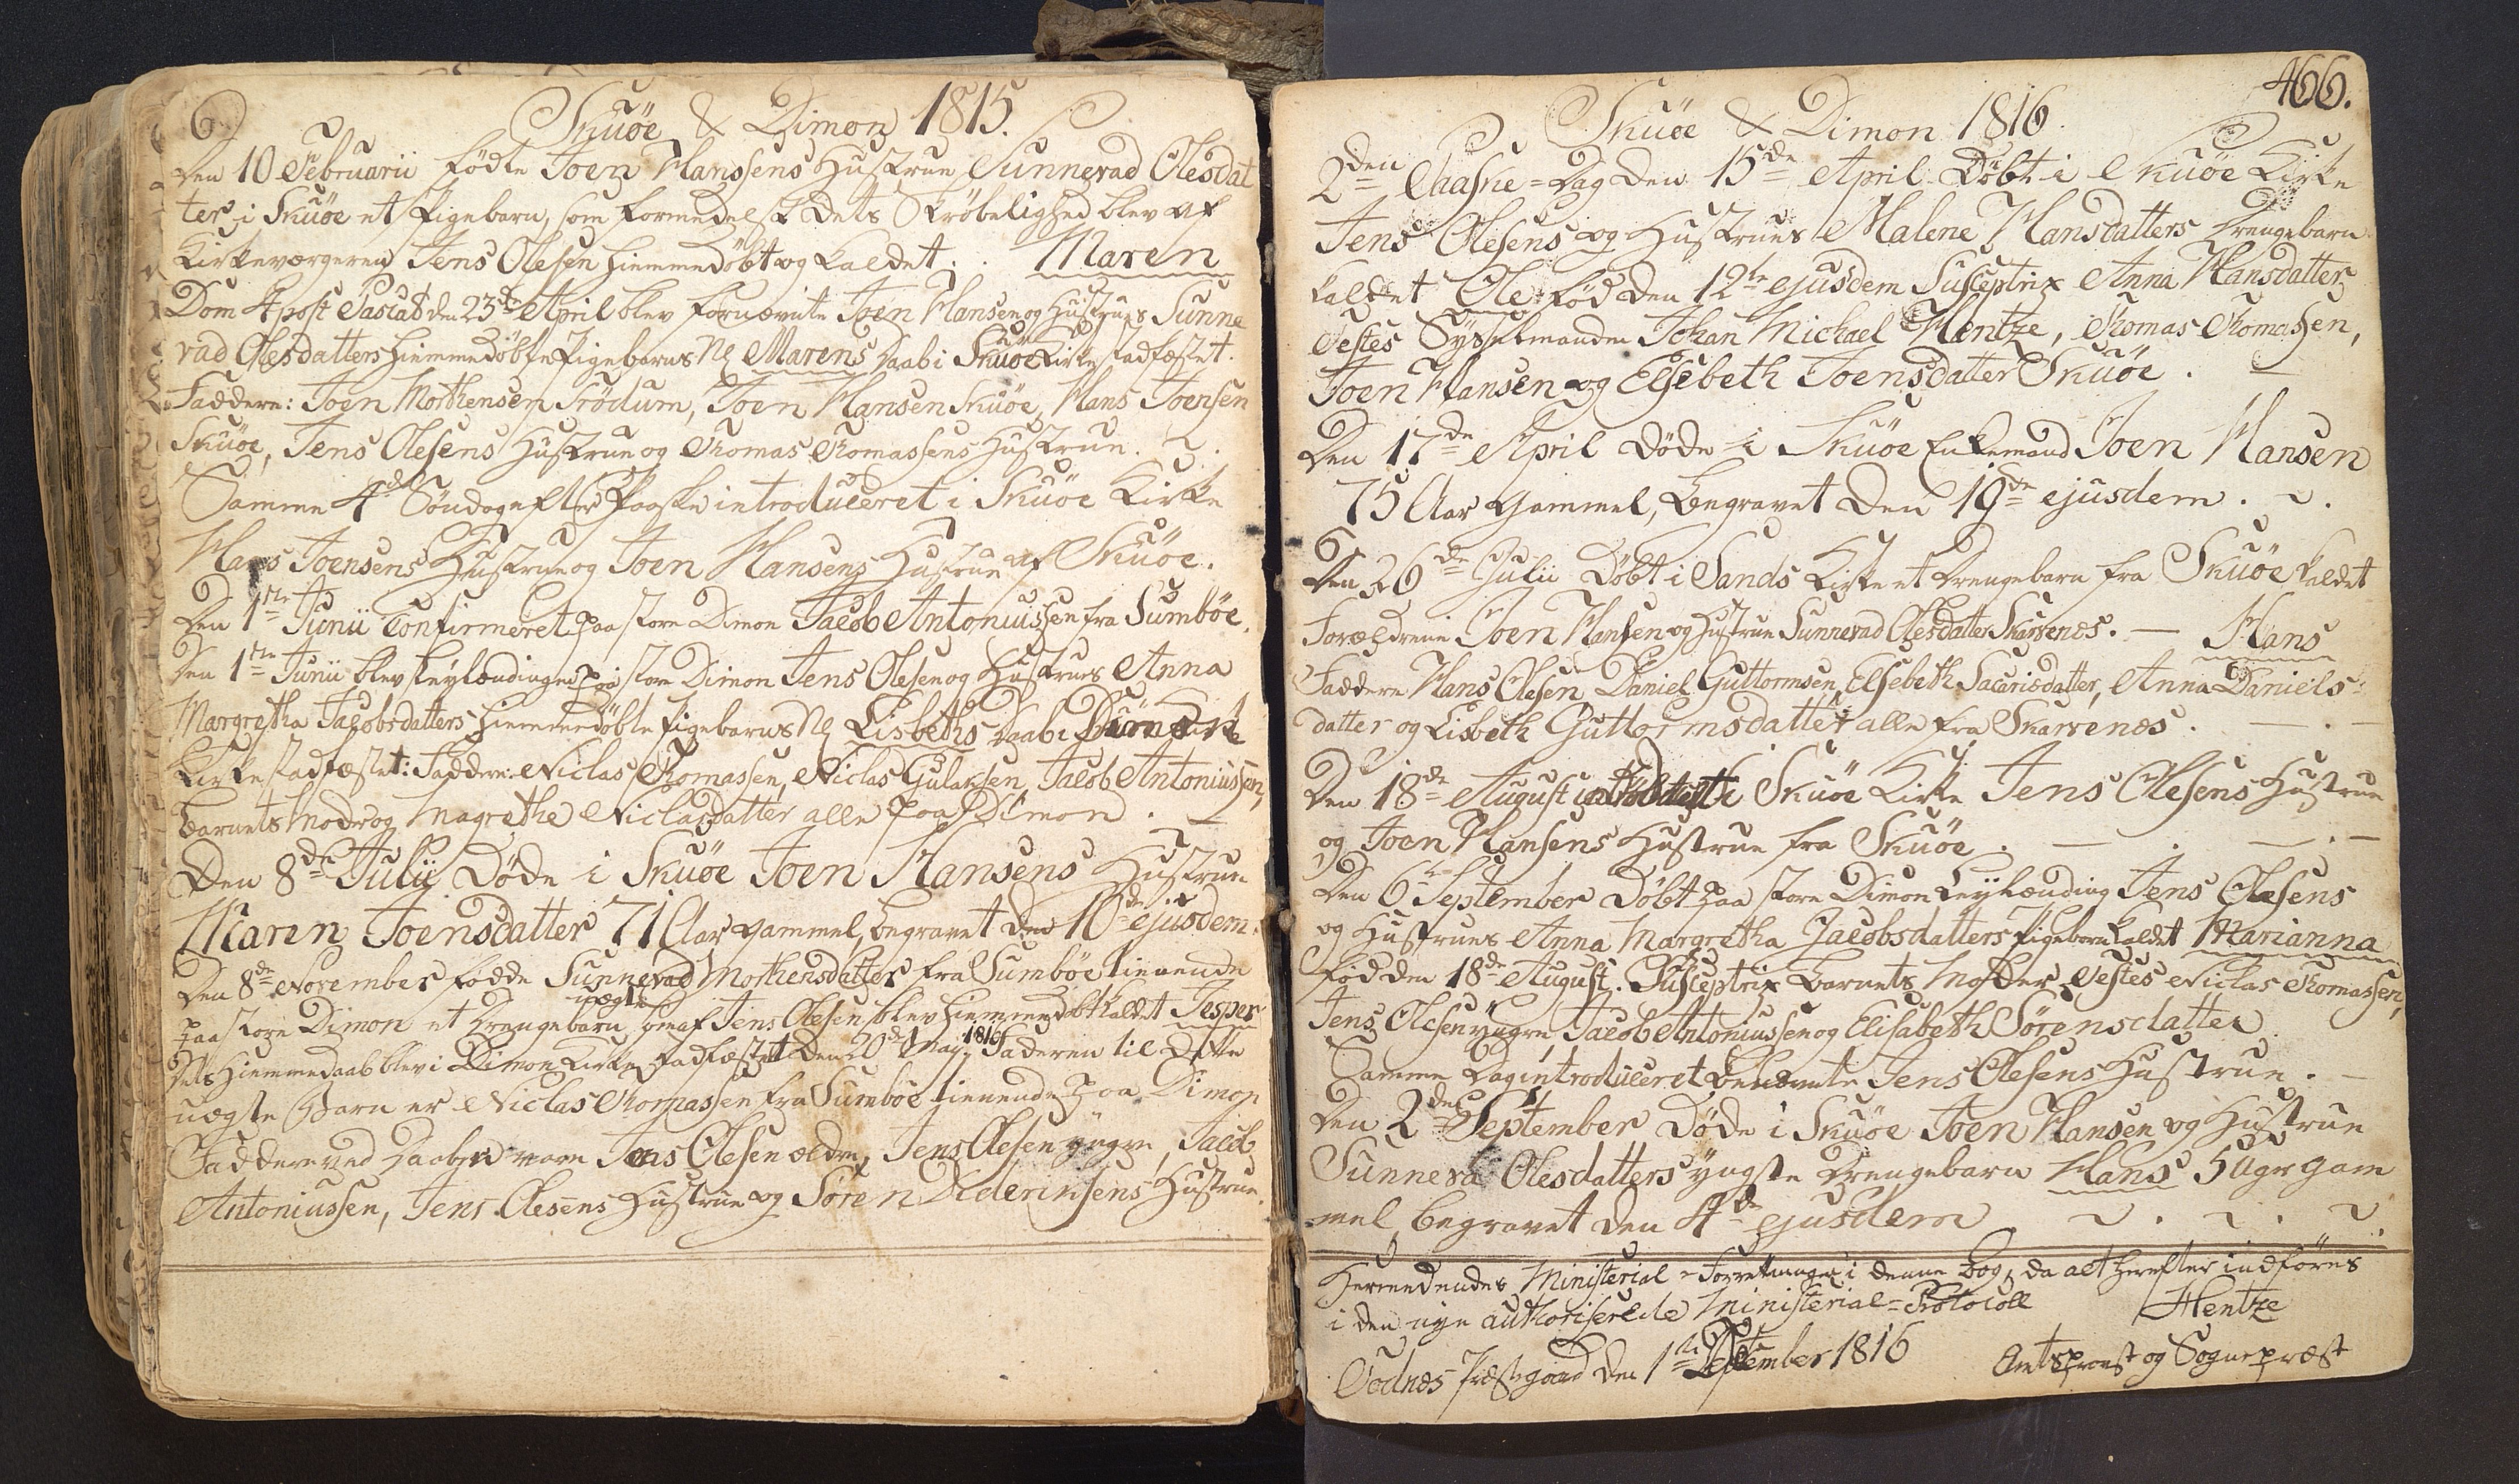 Skuöe & Dimon 1815.
Den 10 Februarii fødte Joen Hanssens Hustrue Sunnevad Olesdat
ter i Skuöe et Pigebarn, som formedelst dets Skrøbelighed blev af
Kirkeværgeren Jens Olesen hiemmedøbt og kaldet. . Maren
Dom 4 post Pascat den 23de April blev fornævnte Joen Hansen og Hustrues Sunne
vad Olesdatters hiemmedøbte Pigebarns Nl Marens Daab i Skuöe Kirke stadfæstet.
Faddere: Joen Morthensen Trödum, Joen Hansen Skuöe, Hans Joensen
Skuöe, Jens Olesens Hustrue og Thomas Thomassens Hustrue.
Samme 4de Søndag efter Paaske introduceret i Skuöe Kirke
Hans Joensens Hustrue og Joen Hansens Hustrue af Skuöe.
Den 1ste Junii Confirmeret paa store Dimon Jacob Antoniussen fra Sumböe.
Den 1ste Junii blev Leylændingen paa store Dimon Jens Olesen og Hustrues Anna
Margretha Jacobsdatters hiemmedøbte Pigebarns Nl Lisbeths Daab i Dimon
Kirke stadfæstet: Faddere: Niclas Thomassen, Niclas Gulaksen, Jacob Antoniussen,
Barnets Moder og Magrethe Niclasdatter alle paa Dimon.
Den 8de Julii Døde i Skuöe Joen Hansens Hustrue
Maren Joensdatter 71 Aar gammel, begravet den 10de ejusdem.
Den 8de November fødde Sunnevad Mothensdatter fra Sumböe tienende
uægte
paa store Dimon et Drengebarn, som af Jens Olesen blev hiemmedøbt kaldet Jesper
Dets Hiemmedaab blev i Dimon Kirke stadfæstet den 20de May 1816 Faderen til dette
uægte Barn er Niclas Thomassen fra Sumböe tienende paa Dimon
Faddere ved Daaben vare Jens Olesen ældre, Jens Olesen yngre, Jacob
Antoniussen, Jens Olesens Hustrue og Sören Dideriksens Hustrue.
466.
Skuöe & Dimon 1816
2den Paaske-Dag den 15de April Døbt i Skuöe Kirke
Jens Olesens og Hustrues Malene Hansdatters Drengebarn
kaldet Ole fød den 12te ejusdem Susceptrix Anna Hansdatter
Testes Sysselmanden Johan Michael Hentze, Thomas Thomassen,
Joen Hansen og Elsebeth Joensdatter Skuöe.
Den 17de April Døde i Skuöe Enkemand Joen Hansen
75 Aar gammel, begravet Den 19de ejusdem.
Den 26de Julii Døbt i Sands Kirke et Drengebarn fra Skuöe kaldet
Forældrene Joen Hansen og Hustrue Sunnevad Olesdatter Skarvenæs. — Hans
Faddere Hans Olesen, Daniel Guttormsen, Elsebeth Sacarisdatter, Anna Daniels-
datter og Lisbeth Guttormsdatter alle fra Skarvenæs.
Den 18de August introduceret i Skuöe Kirke Jens Olesens Hustrue
og Joen Hansens Hustrue fra Skuöe.
Den 6te September Døbt paa store Dimon Leylænding Jens Olesens
og Hustrues Anna Margretha Jacobsdatters Pigebarn kaldet Marianna
fød den 18de August. Susceptrix Barnets Moder Testes Niclas Thomassen,
Jens Olesen yngre Jacob Antoniussen og Elisabeth Sörensdatter
Samme Dag introduceret benævnte Jens Olesens Hustrue.
Den 2den September Døde i Skuöe Joen Hansen og Hustrue
Sunneva Olesdatters yngste Drengebarn Hans 5 Uger gam
mel, begravet den 4de ejusdem
Hermed endes Ministerial-Forretninger i denne Bog, da alt herefter indföres
i den nye authoriserede Ministerial-Protocoll Hentze
Todnæs Præstegaard den 1ste September 1816 Amtsprovst og Sognepræst